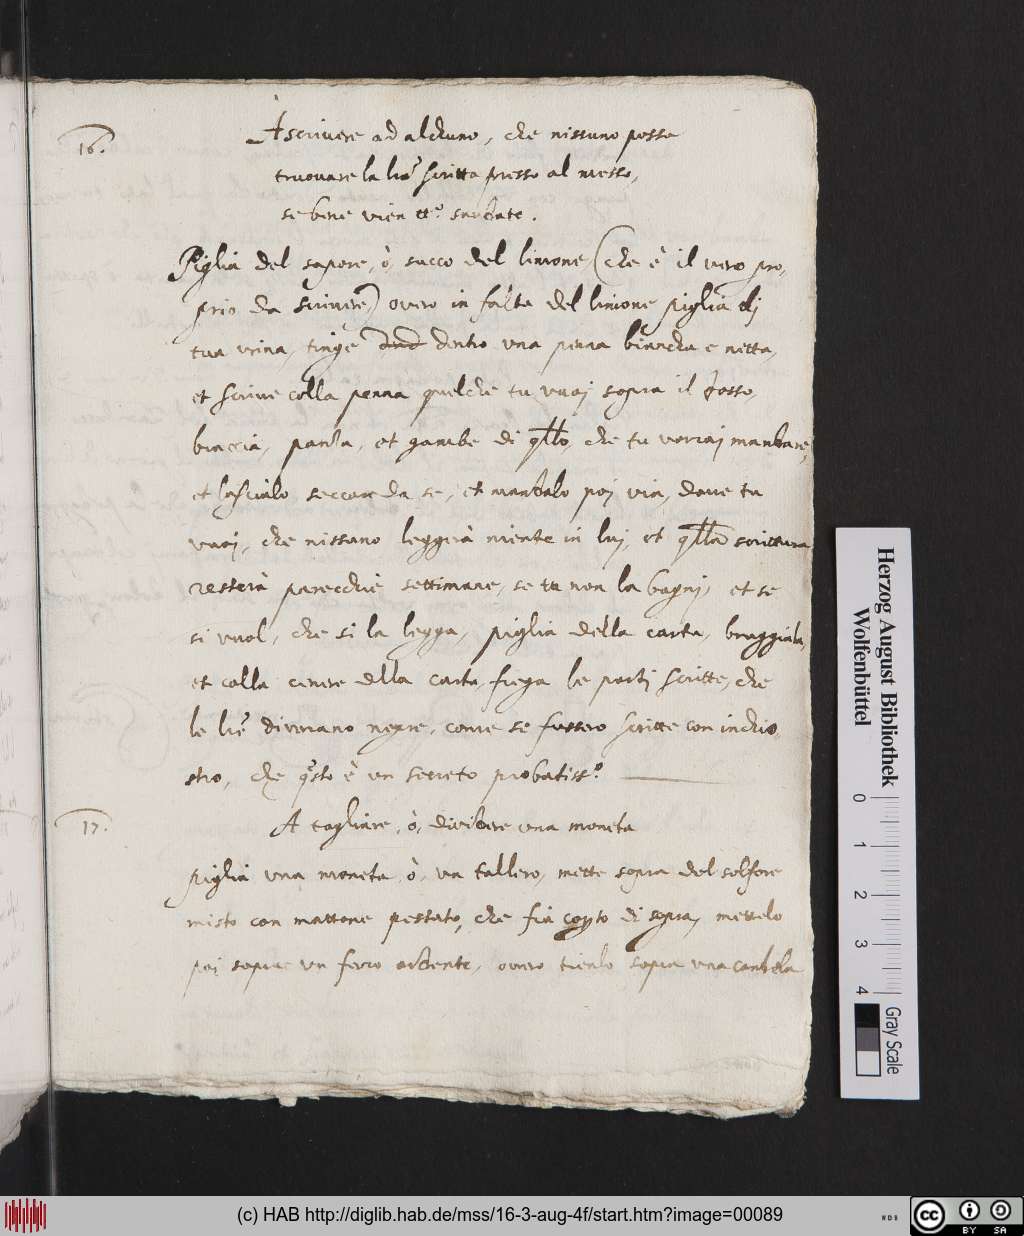 16.
A scriuere ad alchuno, che nissuno possa
truouare la lrã scritta presso al messo,
se bene vien ttº. sardate.
Piglia del sapore, ò, succo del limone (che è il vero pro,
prio da scriuere) ouero in falta del limone piglia dj
tua vrina, tinge dentro vna penna biancha e netta,
et scriue colla penna quelche tu vuoj sopra il dosso,
braccia, pantia, et gambe di qllo, che tu vorraj mandare,
et lascialo seccare da se, et mandalo poj via, doue tu
vuoj, che nissuno leggerà niente in luj, et qlla scrittura
resterà parecchie settimane, se tu non la bagnj, et se
si vuol, che si la legga, piglia della carta, bruggiala,
et colla cenere dlla carta, friega le partj scritte, che
le lrẽ diuerano negre, come se fussero scritte con inchio,
stro, che qsto è vn secreto probatissº.
17.
A tagliare, ò, diuidere una moneta
piglia una moneta, ò, vn tallero, mette sopra del solfore
misto con mattone pestato, che sia copto di sopra, mettelo
poj sopra vn ferro ardente, ouero tienlo sopra vna candela
Herzog August Bibliothek
Wolfenbüttel
0 1 2 3 4
Gray Scale
(c) HAB http://diglib.hab.de/mss/16-3-aug-4f/start.htm?image=00089
WDB
cc BY SA